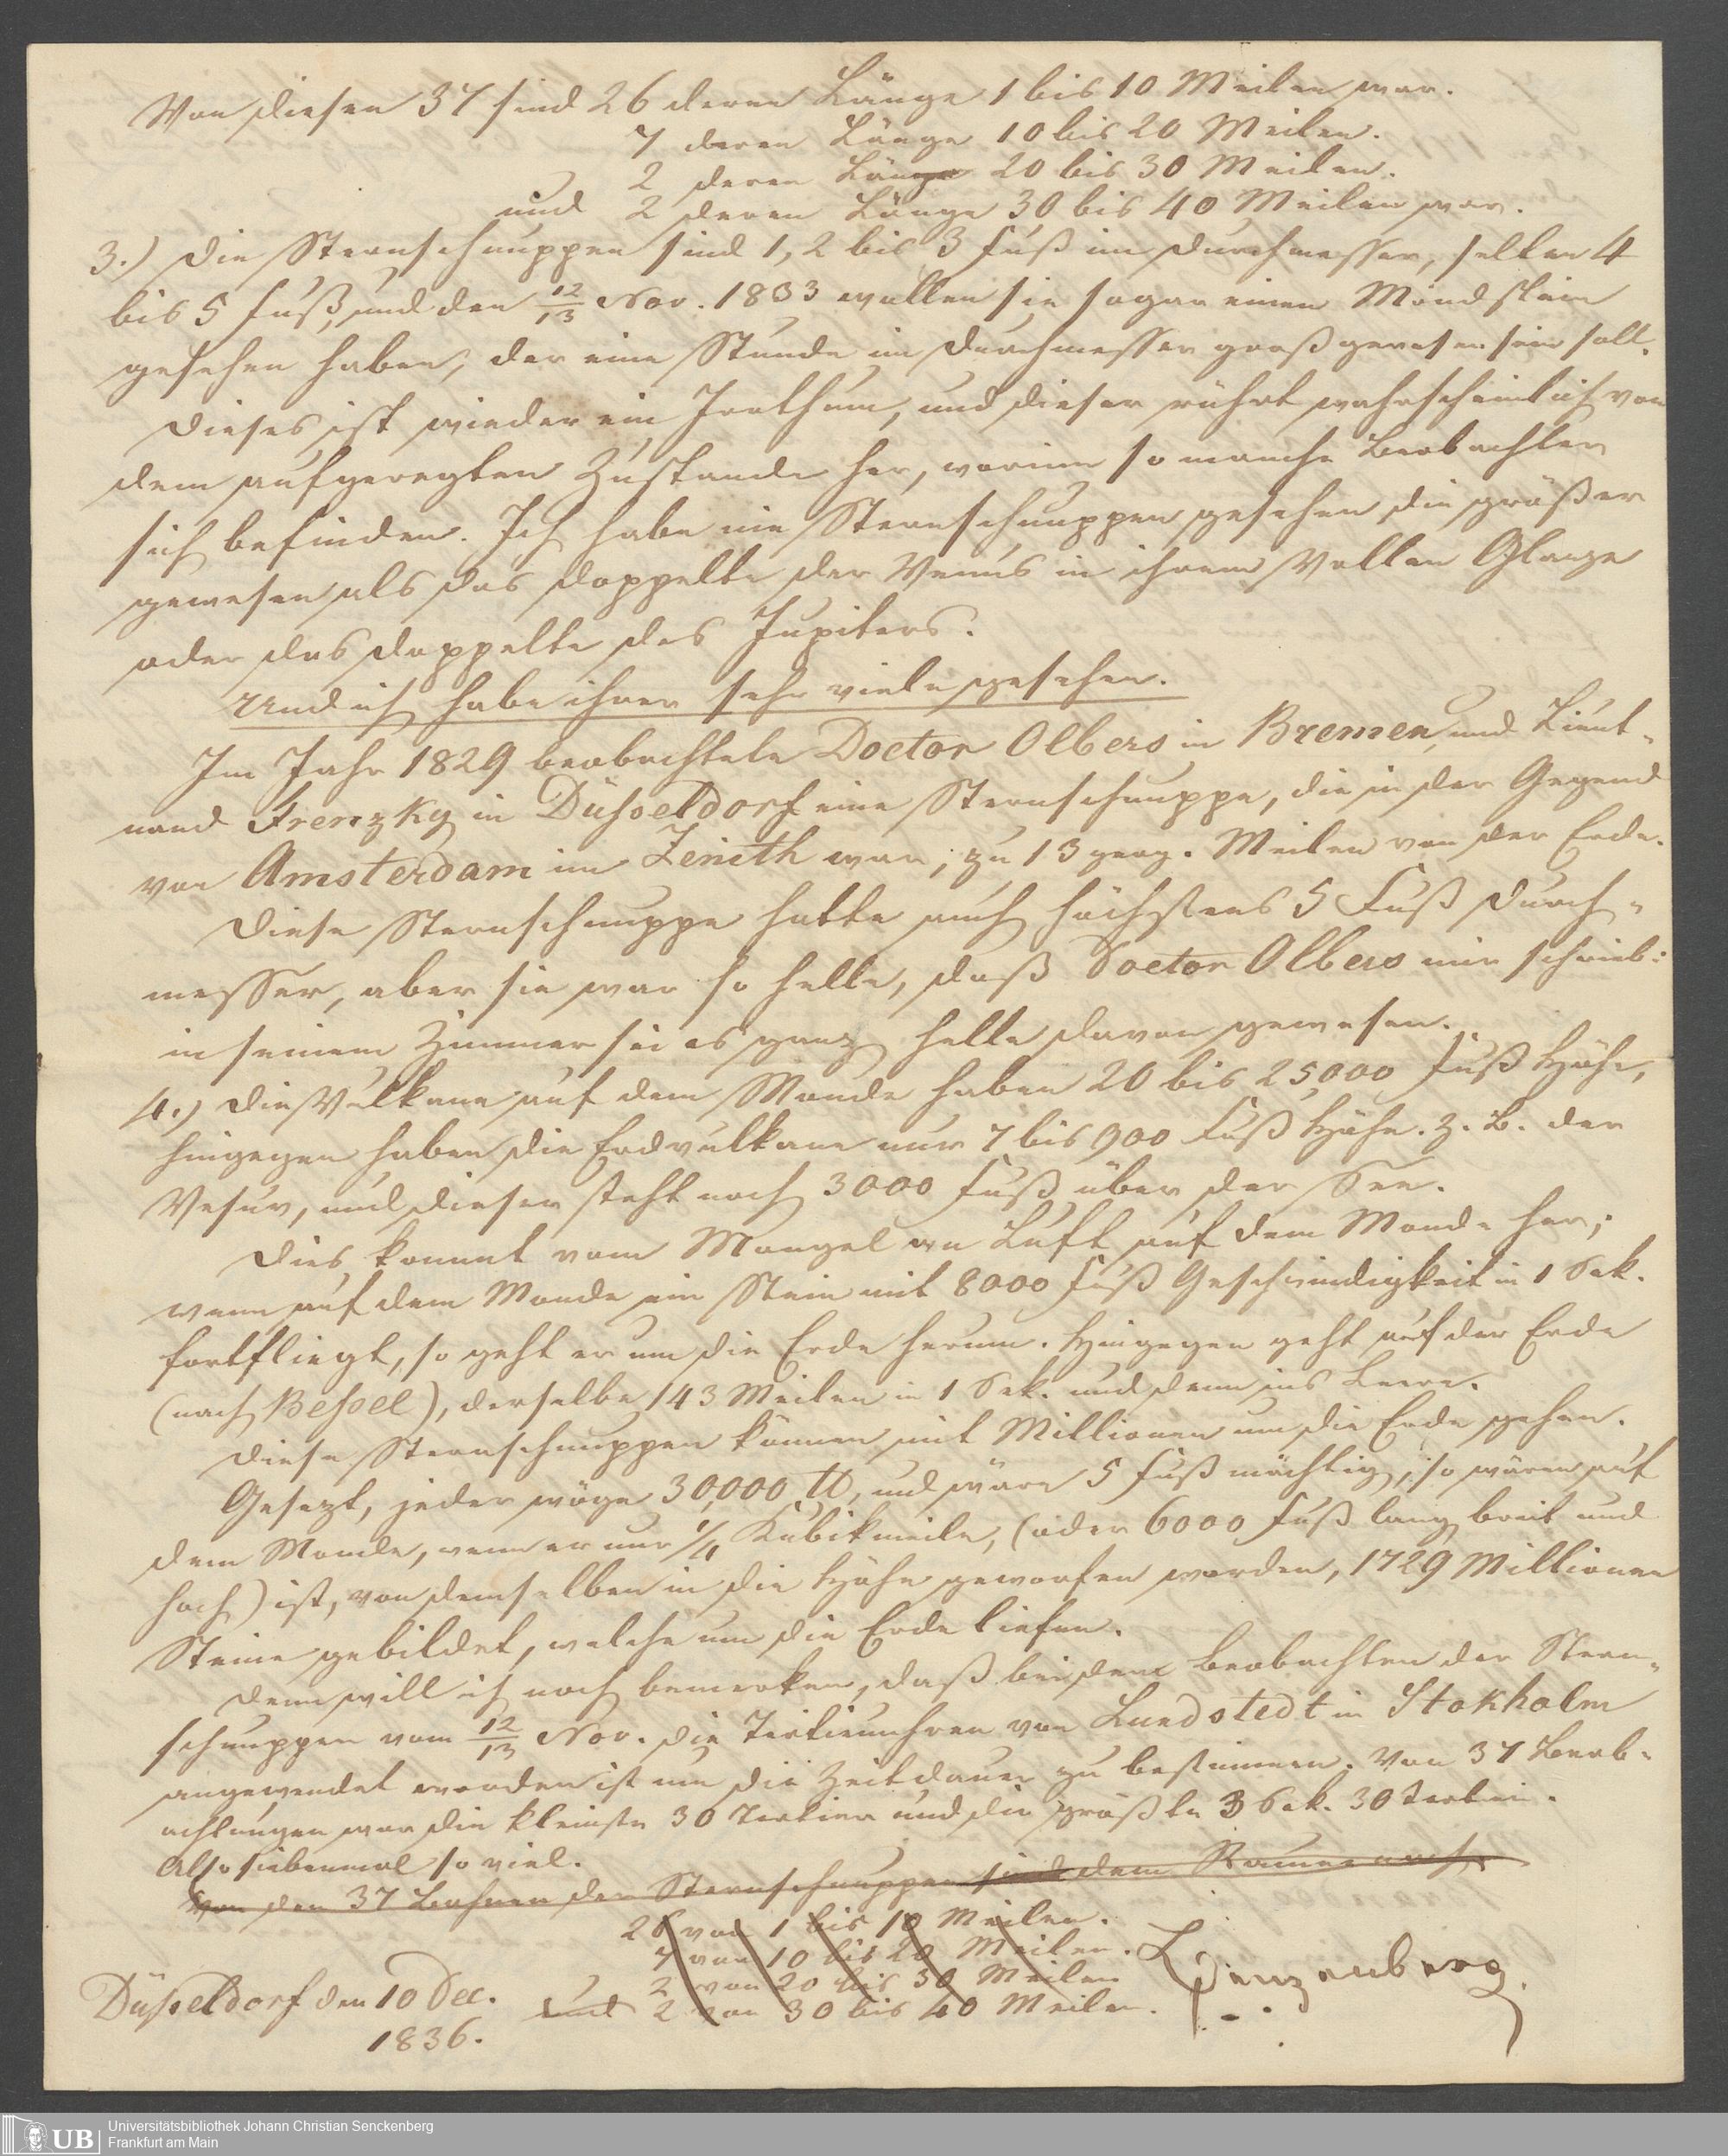 Von diesen 37 sind 26 deren Länge 1 bis 10 Meilen war.
7 deren Länge 10 bis 20 Meilen.
2 deren Länge 20 bis 30 Meilen.
und 2 deren Länge 30 bis 40 Meilen war.
3.) Die Sternschnuppen sind 1, 2 bis 3 Fuß im Durchmesser, selten 4
bis 5 Fuß, und den 12/13 Nov. 1833 wollen sie sogar einen Mondstein
gesehen haben, der eine Stunde im Durchmesser groß gewesen sein soll.
Dieses ist wieder ein Irrthum, und dieser rührt wahrscheinlich von
dem aufgeregten Zustande her, worinn so manche Beobachter
sich befinden. Ich habe nie Sternschnuppen gesehen die größer
gewesen als das doppelte der Venus in ihrem vollen Glanze
oder das doppelte des Jupiters.
Und ich habe ihrer sehr viele gesehen.
Im Jahr 1829 beobachtete Doctor Olbers in Bremen, und Lieut-
nand Frenzky in Düsseldorf eine Sternschnuppe, die in der Gegend
von Amsterdam im Zenith war, zu 13 geog. Meilen von der Erde.
Diese Sternschnuppe hatte auch höchstens 5 Fuß Durch-
messer, aber sie war so helle, daß Doctor Olbers mir schrieb:
in seinem Zimmer sei es ganz helle davon gewesen.
4.) Die Vulkane auf dem Monde haben 20 bis 25,000 Fuß Höhe,
hingegen haben die Erdvulkane nur 7 bis 900 Fuß Höhe. z. B. der
Vesuv, und dieser steht noch 3000 Fuß über der See.
Dies kommt vom Mangel an Luft auf dem Monde her;
wenn auf dem Monde ein Stein mit 8000 Fuß Geschwindigkeit in 1 Sek.
fortfliegt, so geht er um die Erde herum. Hingegen geht auf der Erde
(nach Bessel), derselbe 143 Meilen in 1 Sek. und dann ins Leere.
Diese Sternschnuppen können mit Millionen um die Erde gehen.
Gesezt, jeder wöge 30,000 ℔, und wäre 5 Fuß mächtig, so wären auf
dem Monde, wenn er nur 1/4 Kubikmeile, (oder 6000 Fuß lang breit und
hoch) ist, von demselben in die Höhe geworfen worden, 1729 Millionen
Steine gebildet, welche um die Erde liefen.
Denn will ich noch bemerken, daß bei dem Beobachten der Stern-
schnuppen vom 12/13 Nov. die Tertienuhren von Lundstedt in Stokholm
angewendet worden ist um die Zeitdauer zu bestimmen. Von 37 Beob-
achtungen war die kleinste 30 Tertien und die größte 3 Sek. 30 Tertien.
Also siebenmal so viel.
Von den 37 Bahnen der Sternschnuppen sind dem Raume nach
26 von 1 bis 10 Meilen.
7 von 10 bis 20 Meilen.
2 von 20 bis 30 Meilen
und 2 von 30 bis 40 Meilen.
Benzenberg.
Düsseldorf den 10 Dec.
1836.
UB
Universitätsbibliothek Johann Christian Senckenberg
Frankfurt am Main